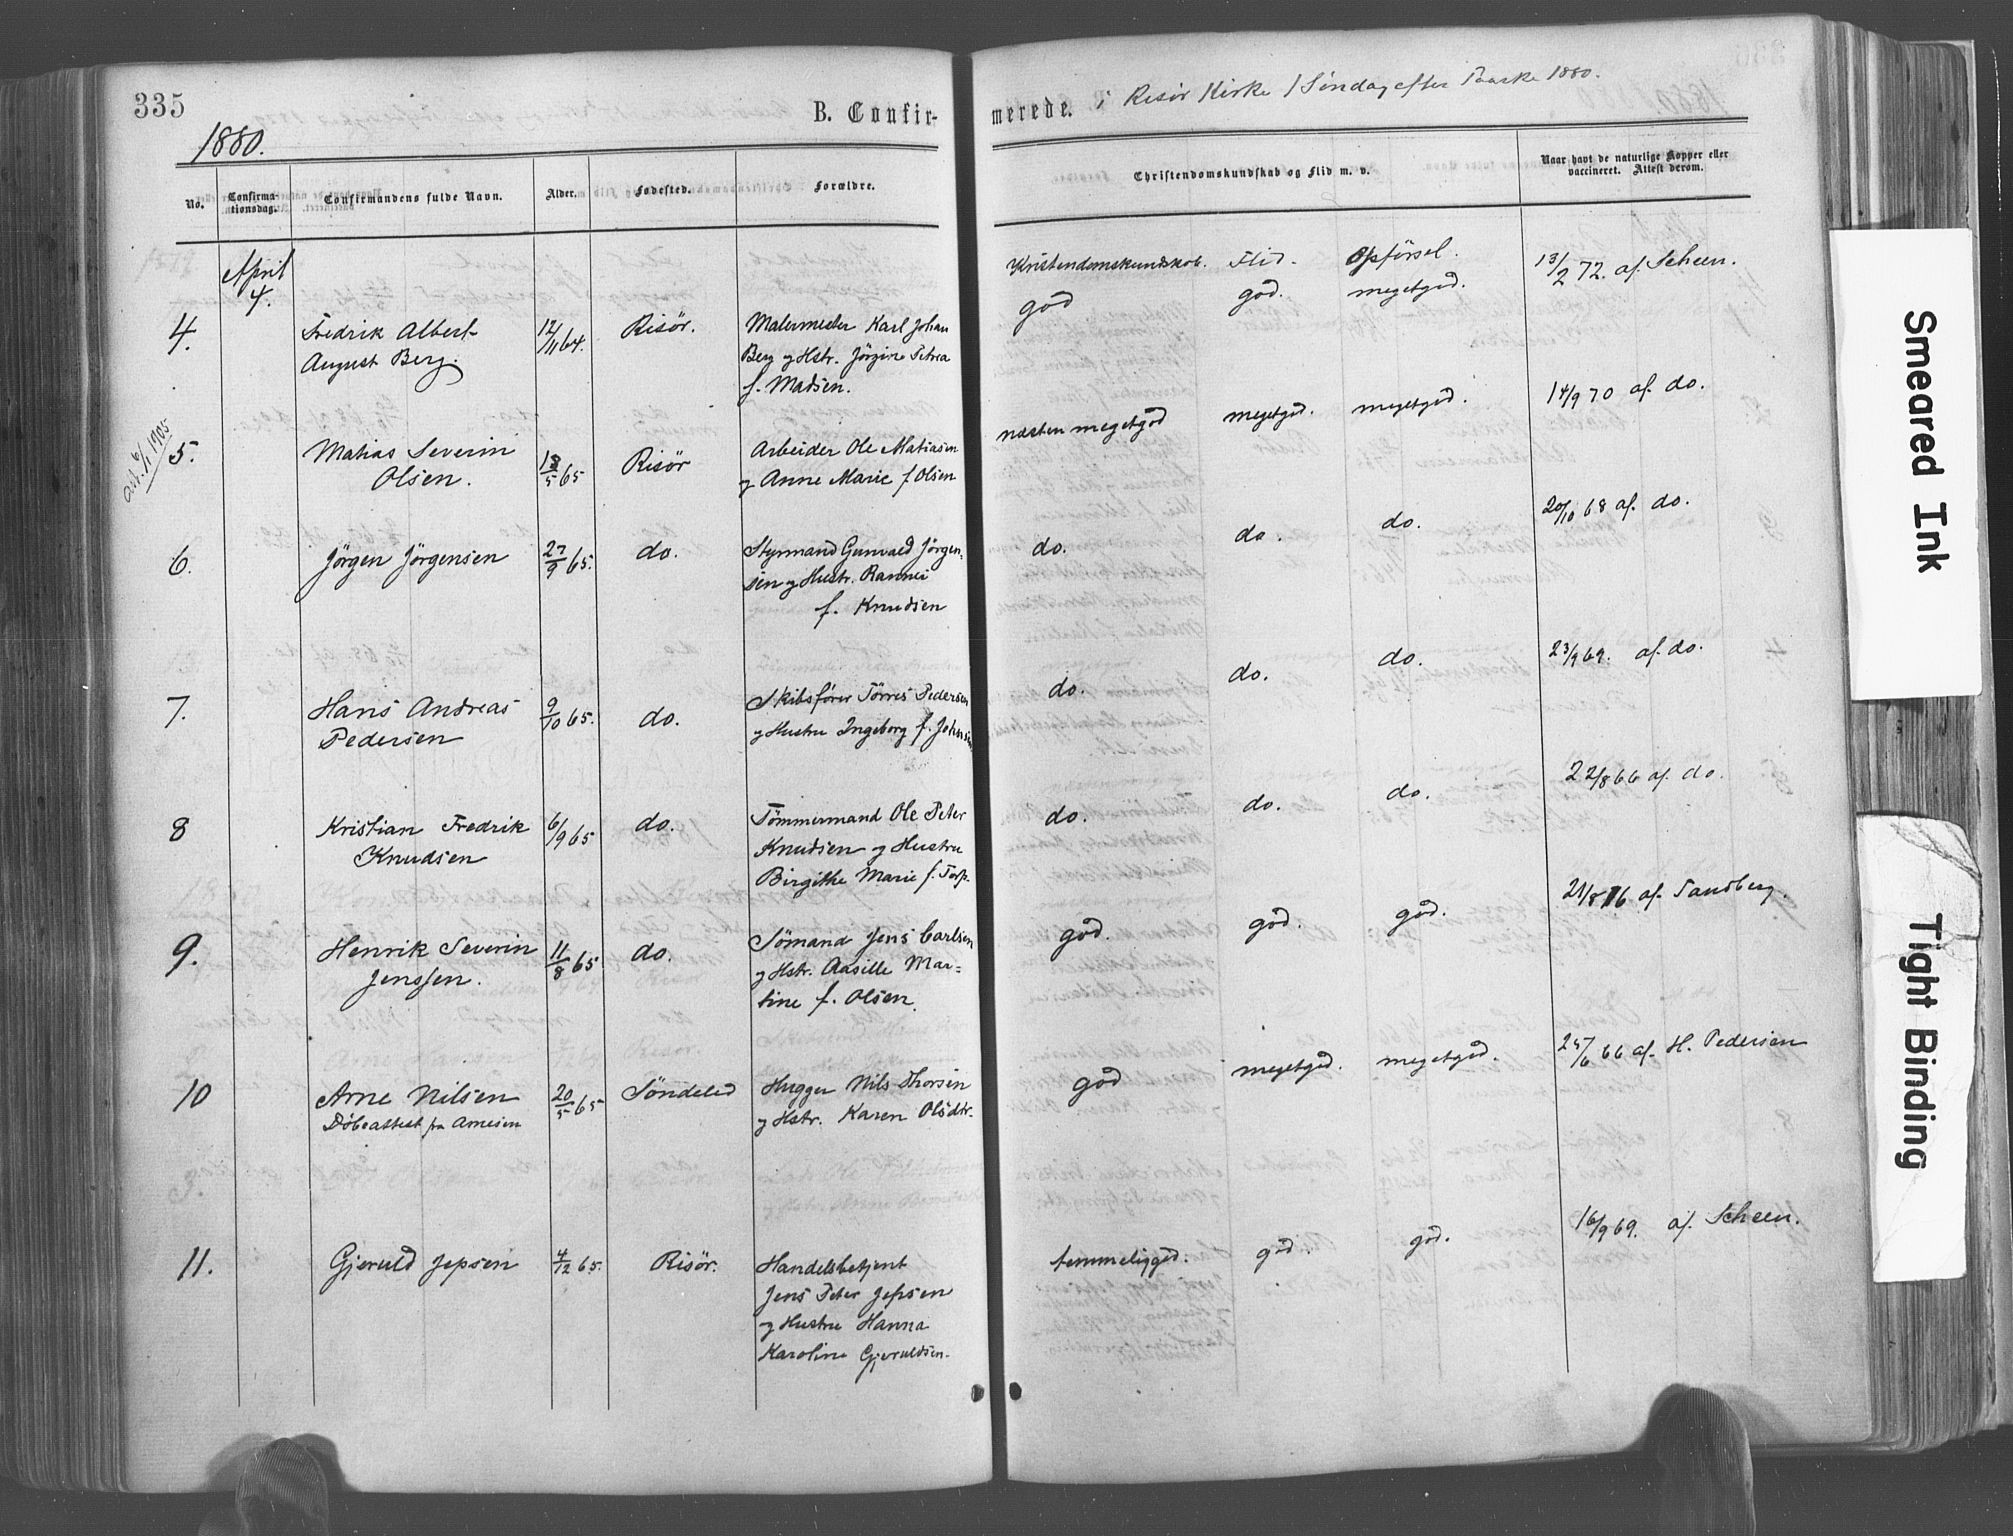 335
B. Confir-
merede. i Risör Kirke 1 Söndag efter Paaske 1880.
1880.
No.
Confirma-
tionsdag.
Confirmandens fulde Navn.
Alder.
Fødested.
Forældre.
Christendomskundskab og Flid m. v.
Naar havt de naturlige Kopper eller
vaccineret. Attest derom.
April
4.
Kristendomskundskab. Flid. Opförsel.
4.
Fredrik Albert
August Berg.
12/11 64.
Risör.
Malermester Karl Johan
Berg og Hstr. Jörgine Petrea
f. Madsen.
god god. megetgod.
13/2 72. af. Scheen.
att. 6/1 1905
5.
Matias Severin
Olsen.
5 65
Risör
Arbeider Ole Matiasen
og Anne Marie f Olsen
næsten megetgod megetgod. megetgod.
14/9 70 af. do.
6.
Jörgen Jörgensen
27/9 65.
do.
Styrmand Gunvald Jörgen-
sen og Hustr. Rannei
f. Knudsen
do. do. do.
20/10 68 af. do.
7.
Hans Andreas
Pedersen
9/10 65.
do.
Skibsfører Törres Pedersen
og Hustru Ingeborg f. Johnsen
do. do. do.
23/9 69. af. do.
8
Kristian Fredrik
Knudsen
6/9 65
do.
Tömmermand Ole Peter
Knudsen og Hustru
Birgithe Marie f. Torp-
do. do. do.
22/8 66 af. do.
9.
Henrik Severin
Jenssen.
11/8 65
do.
Sömand Jens Carlsen
og Hstr. Aasille Mar=
tine f. Olsen.
god. god. god.
21/8 76 af. Sandberg.
10
Arne Nilsen
Döbeattest fra Arnesen
20/5 65
Söndeled
Hugger Nils Thorsen
og Hstr. Karen Olsdtr.
god megetgod. megetgod.
/6 66 af. H. Pedersen
11.
Gjeruld Jepsen
4/12 65.
Risör.
Handelsbetjent
Jens Peter Jepsen
og Hustru Hanna
Karoline Gjeruldsen.
temmeliggod. god. god.
16/9 69. af. Scheen.
Smeared Ink
Tight Binding